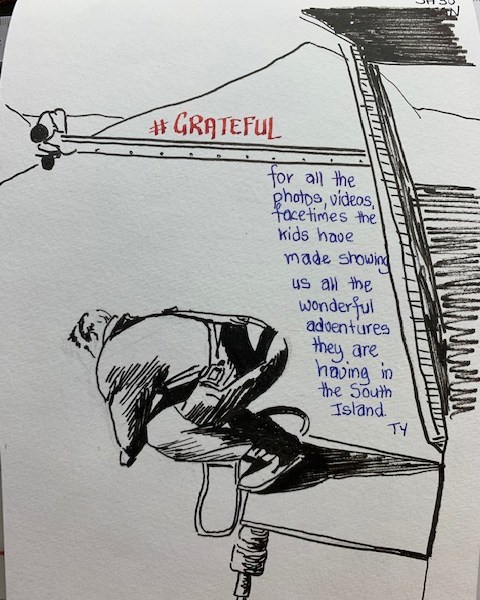 # GRATEFUL
for all the
photos, videos,
facetimes the
kids have
made showing
us all the
wonderful
adventures
they are
having in
the South
Island.
TY